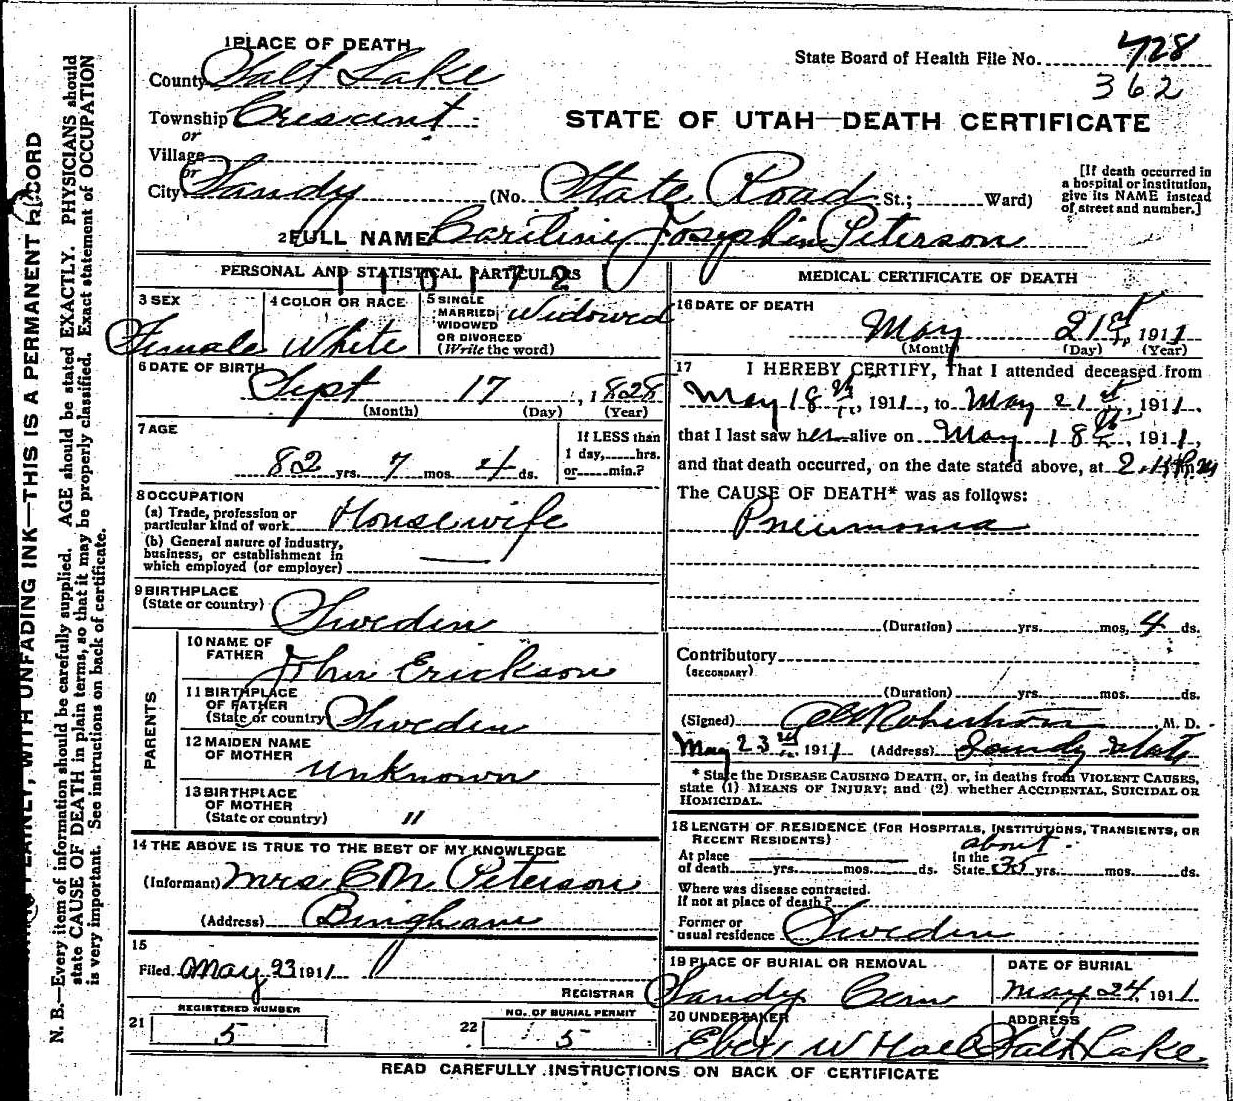 1 PLACE OF DEATH
County Salt Lake
State Board of Health File No. 428
362
Township Crescent
or
Village
or
City Sandy (No. State Road St.; Ward)
STATE OF UTAH—DEATH CERTIFICATE
[If death occurred in a hospital or institution, give its NAME instead of street and number.]
2 FULL NAME Cariline Josephin Peterson
PERSONAL AND STATISTICAL PARTICULARS
3 SEX
Female
4 COLOR OR RACE
White
5 SINGLE
MARRIED
WIDOWED
OR DIVORCED
(Write the word)
Widowed
6 DATE OF BIRTH
Sept 17, 1828
(Month) (Day) (Year)
7 AGE
82 yrs. 7 mos. 4 ds.
If LESS than
1 day, hrs.
or min.?
8 OCCUPATION
(a) Trade, profession or
particular kind of work Housewife
(b) General nature of industry,
business, or establishment in
which employed (or employer)
9 BIRTHPLACE
(State or country) Sweden
PARENTS
10 NAME OF
FATHER John Erickson
11 BIRTHPLACE
OF FATHER
(State or country) Sweden
12 MAIDEN NAME
OF MOTHER Unknown
13 BIRTHPLACE
OF MOTHER
(State or country) "
14 THE ABOVE IS TRUE TO THE BEST OF MY KNOWLEDGE
(Informant) Mrs C M Peterson
(Address) Bingham
15
Filed May 23 1911
REGISTRAR
21 REGISTERED NUMBER
5
22 NO. OF BURIAL PERMIT
5
MEDICAL CERTIFICATE OF DEATH
16 DATE OF DEATH
May 21st, 1911
(Month) (Day) (Year)
17 I HEREBY CERTIFY, That I attended deceased from
May 18th, 1911, to May 21st, 1911,
that I last saw her alive on May 18th, 1911,
and that death occurred, on the date stated above, at
The CAUSE OF DEATH* was as follows:
Pneumonia
(Duration) yrs. mos. 4 ds.
Contributory
(SECONDARY)
(Duration) yrs. mos. ds.
(Signed) Robertson M. D.
May 23rd 1911 (Address) Sandy Utah
* State the DISEASE CAUSING DEATH, or, in deaths from VIOLENT CAUSES,
state (1) MEANS OF INJURY; and (2) whether ACCIDENTAL, SUICIDAL OR
HOMICIDAL.
18 LENGTH OF RESIDENCE (FOR HOSPITALS, INSTITUTIONS, TRANSIENTS, OR
RECENT RESIDENTS)
At place
of death yrs. mos. ds.
In the
State about 35 yrs. mos. ds.
Where was disease contracted.
If not at place of death?
Former or
usual residence Sweden
19 PLACE OF BURIAL OR REMOVAL
Sandy Cem
DATE OF BURIAL
May 24, 1911
20 UNDERTAKER
Eber W Hall
ADDRESS
Salt Lake
READ CAREFULLY INSTRUCTIONS ON BACK OF CERTIFICATE
PLAINLY, WITH UNFADING INK—THIS IS A PERMANENT RECORD
N. B.—Every item of information should be carefully supplied. AGE should be stated EXACTLY. PHYSICIANS should
state CAUSE OF DEATH in plain terms, so that it may be properly classified. Exact statement of OCCUPATION
is very important. See instructions on back of certificate.